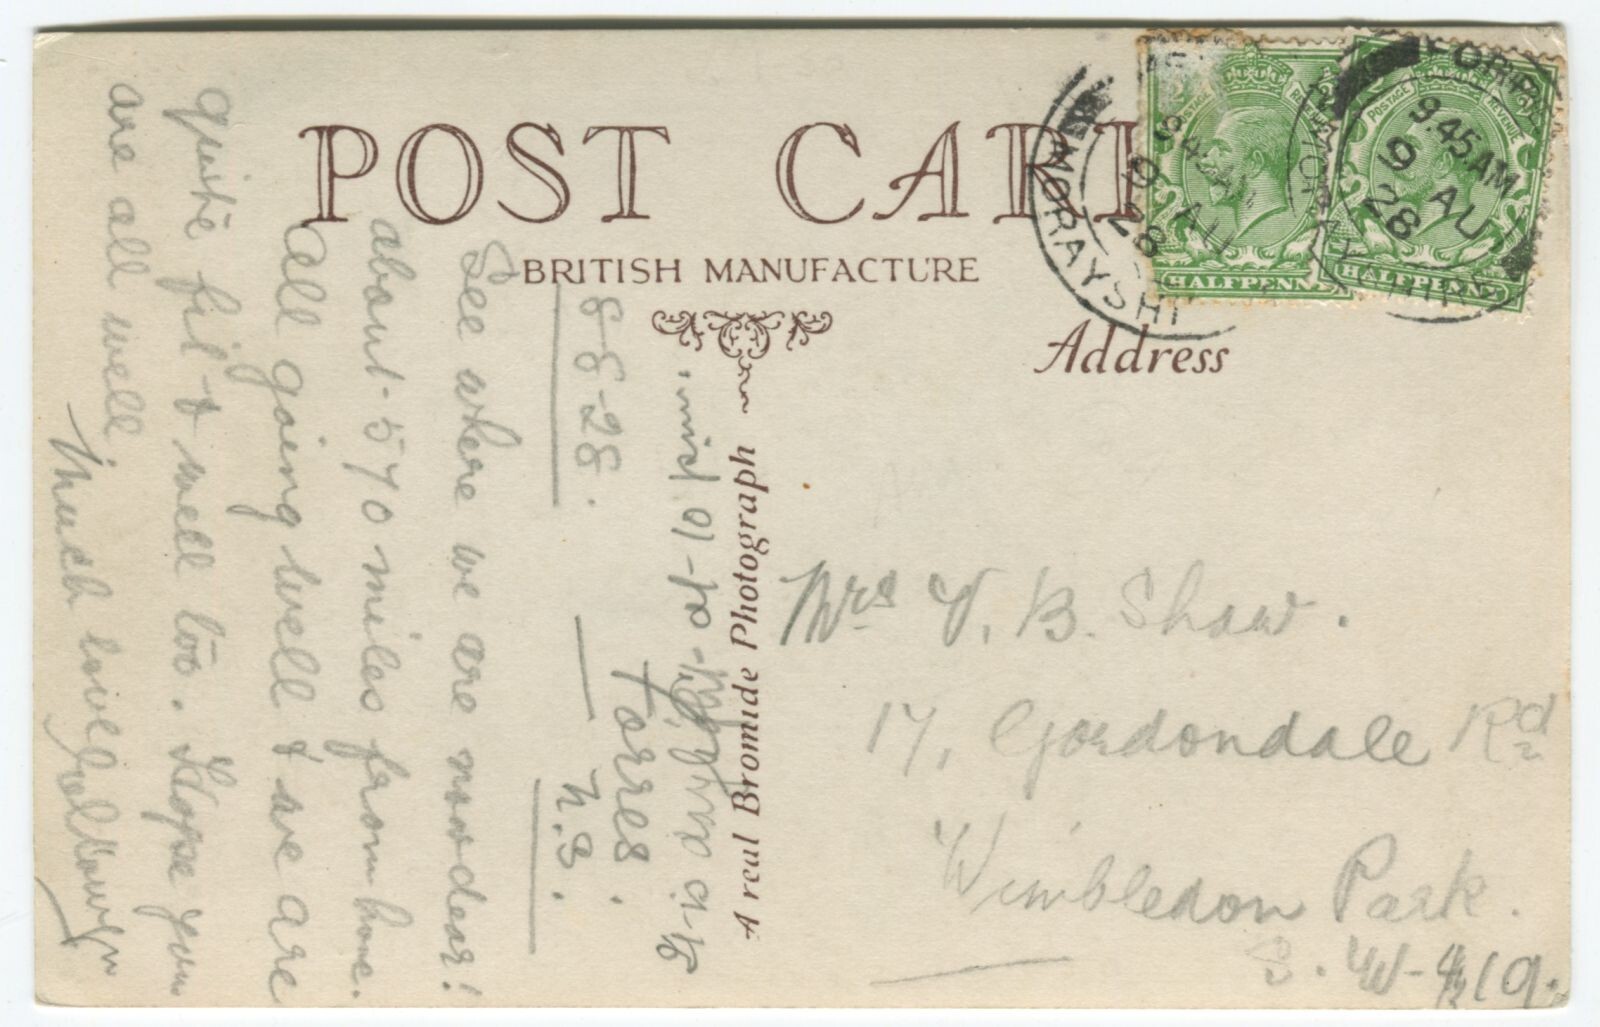 POST CARD
BRITISH MANUFACTURE
Address
A real Bromide Photograph
FORRES
MORAYSHI
9.45AM
9 AU
28
9 AU
28
HALFPENNY
POSTAGE REVENUE
HALFPENNY
8-8-28.
Forres.
N.B.
See where we are now dear!
about 570 miles from home.
All going well & we are
quite fit & well too. Hope you
are all well.
Much love
Mrs V. B. Shaw.
17, Gordondale Rd
Wimbledon Park.
S.W-19.